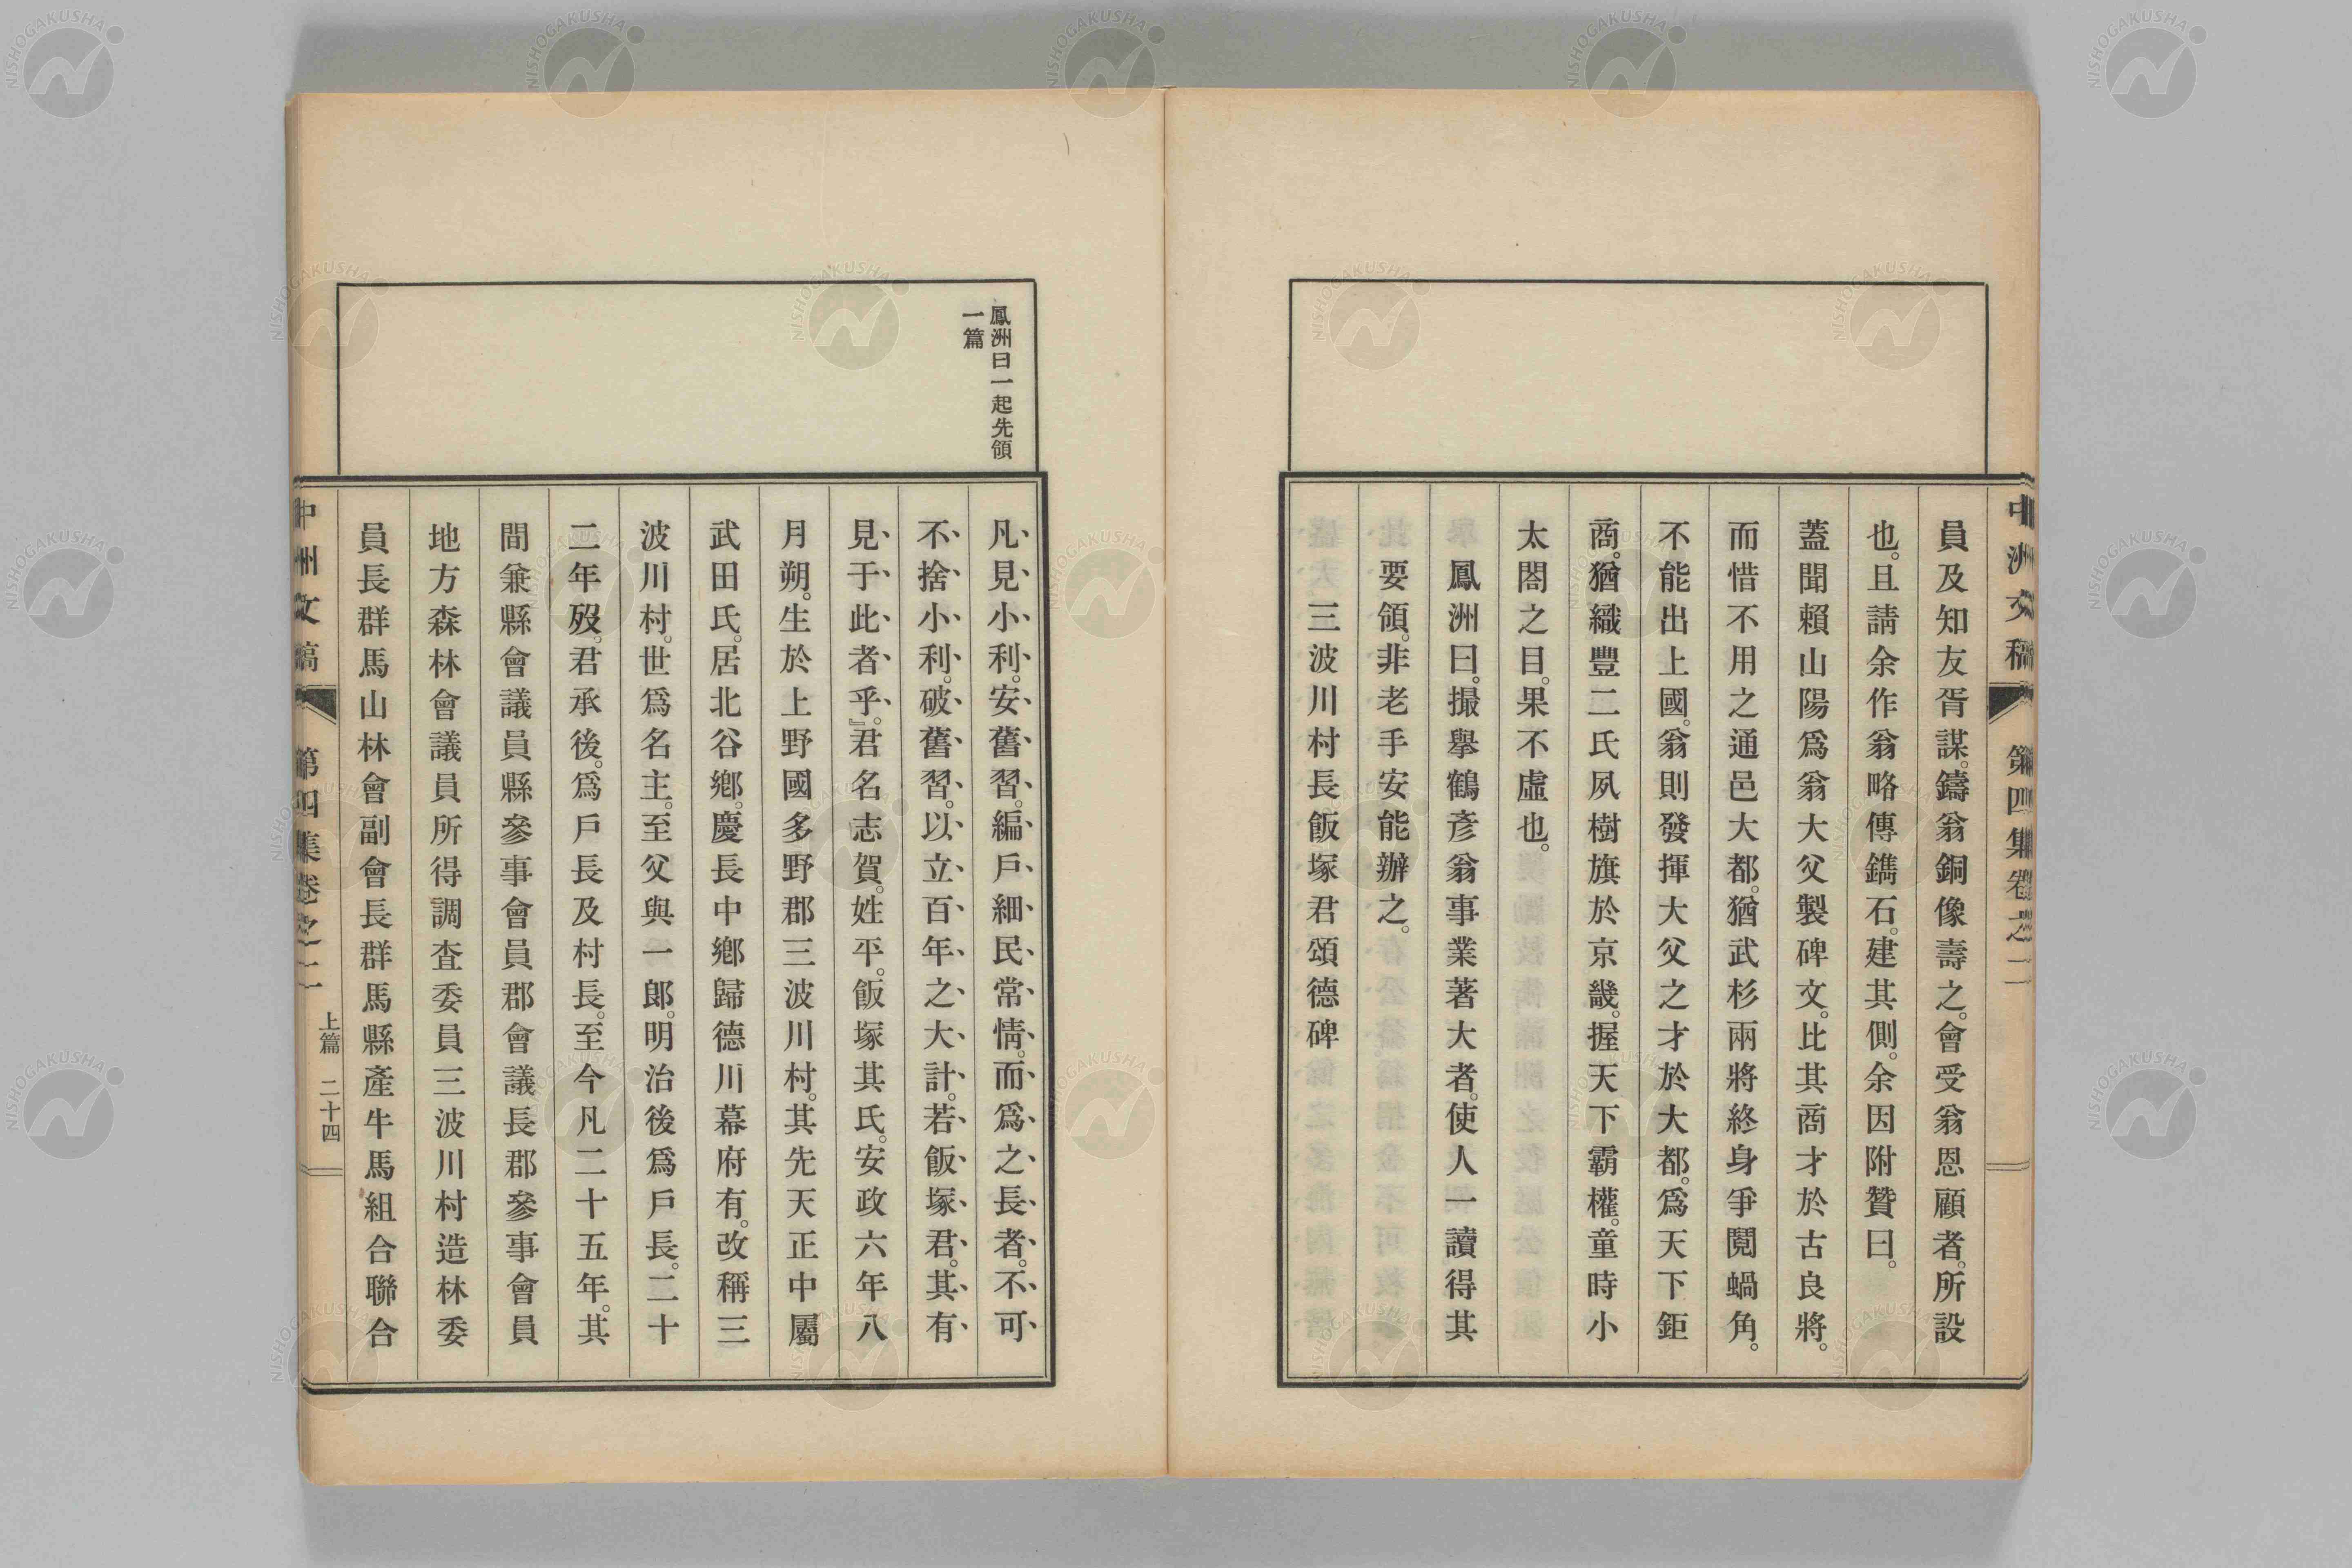 中洲文稿 第四集卷之二
員及知友胥謀。鑄翁銅像壽之。會受翁恩顧者。所設
也。且請余作翁略傳鐫石。建其側。余因附贊曰。
蓋聞賴山陽爲翁大父製碑文。比其商才於古良將。
而惜不用之通邑大都。猶武杉兩將終身爭鬩蝸角。
不能出上國。翁則發揮大父之才於大都。爲天下鉅
商。猶織豐二氏夙樹旗於京畿。握天下霸權。童時小
太閤之目。果不虛也。
鳳洲曰。撮擧鶴彥翁事業著大者。使人一讀得其
要領。非老手安能辦之。
三波川村長飯塚君頌德碑
鳳洲曰一起先領
一篇
凡見小利。安舊習。編戶細民常情。而爲之長者。不可
不捨小利。破舊習。以立百年之大計。若飯塚君。其有
見于此者乎。』君名志賀。姓平。飯塚其氏。安政六年八
月朔。生於上野國多野郡三波川村。其先天正中屬
武田氏。居北谷鄕。慶長中鄕歸德川幕府有。改稱三
波川村。世爲名主。至父與一郎。明治後爲戶長。二十
二年歿。君承後。爲戶長及村長。至今凡二十五年。其
間兼縣會議員縣參事會員郡會議長郡參事會員
地方森林會議員所得調査委員三波川村造林委
員長群馬山林會副會長群馬縣產牛馬組合聯合
中洲文稿 第四集卷之二 上篇 二十四